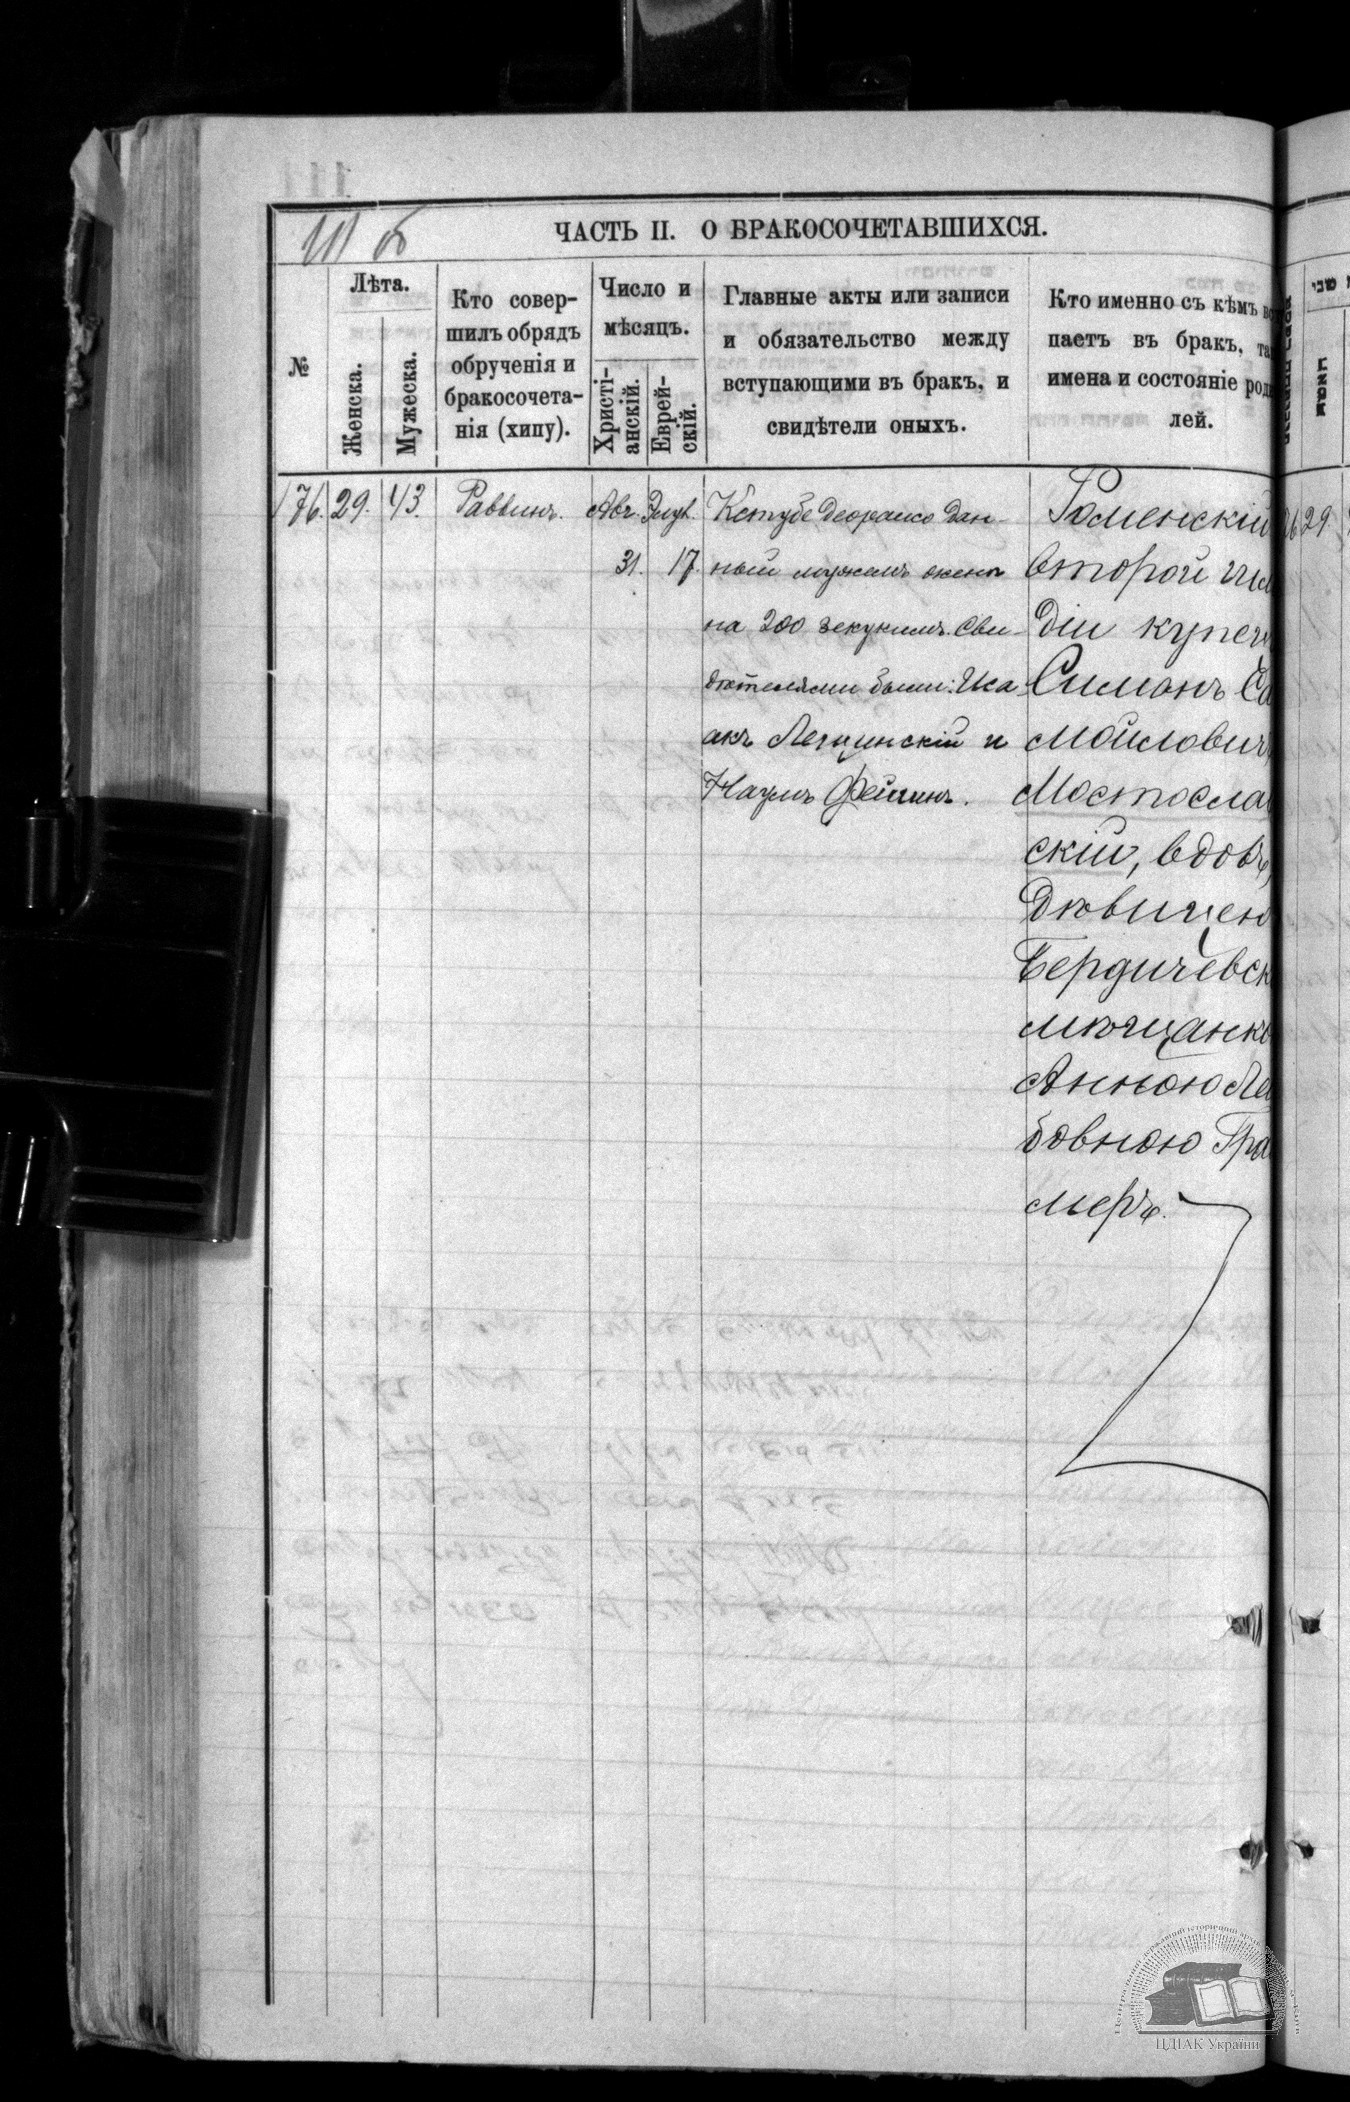 111 об
ЧАСТЬ II. О БРАКОСОЧЕТАВШИХСЯ.
№
Лѣта.
Женска.
Мужеска.
Кто совер-
шилъ обрядъ
обрученія и
бракосочета-
нія (хипу).
Число и
мѣсяцъ.
Христі-
анскій.
Еврей-
скій.
Главные акты или записи
и обязательство между
вступающими въ бракъ, и
свидѣтели оныхъ.
Кто именно съ кѣмъ вс
паетъ въ бракъ, та
имена и состояніе род
лей.
176. 29. 43. Раввинъ. Авг. Элул.
31. 17.
Кетубе Деорайсо дан-
ный мужемъ женѣ
на 200 зекукимъ. Сви-
дѣтелями были: Иса-
акъ Лещинскій и
Наумъ Фейгинъ.
Роменскій
второй гил
діи купец
Симонъ Са
мойловичъ
Мостосла
скій, вдовъ,
Дѣвицею
Бердичевск
мѣщанко
Анною Ле
бовною Кра
меръ.
האשה
29
ЦДІАК України